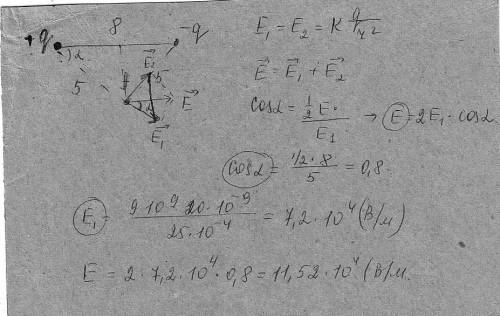 +q 8 -q
α
5 E₂ 5
α E⃗
E⃗₁
E₁ = E₂ = K q/r²
E⃗ = E⃗₁ + E⃗₂
cosα = ½E / E₁ → E = 2E₁ · cosα
cosα = ½ · 8 / 5 = 0,8
E₁ = 9·10⁹ · 20·10⁻⁹ / 25·10⁻⁴ = 7,2 · 10⁴ (В/м)
E = 2 · 7,2 · 10⁴ · 0,8 = 11,52 · 10⁴ (В/м.